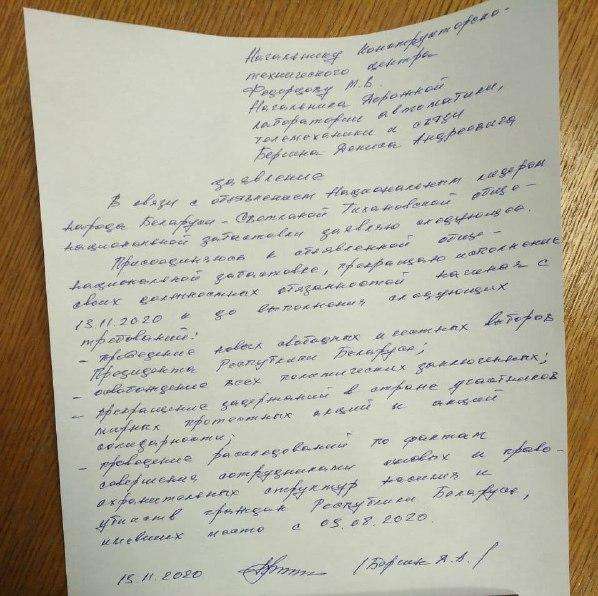 Начальнику Конструкторско-
технического центра
Федорцову М.В
Начальника Дорожной
лаборатории автоматики,
телемеханики и связи
Дениса Андреевича
заявление
В связи с объявлением Национальным лидером
народа Беларуси - Светланой Тихановской обще-
национальной забастовки заявляю следующее.
Присоединяюсь к объявленной обще-
национальной забастовке, прекращаю исполнение
своих должностных обязанностей начиная с
13.11.2020 и до выполнения следующих
требований:
- проведение новых свободных и честных выборов
Президента Республики Беларусь;
- освобождение всех политических заключенных;
- прекращение задержаний в стране участников
мирных протестных акций и акций
солидарности;
- проведение расследований по фактам
совершения сотрудниками силовых и право-
охранительных структур насилия и
убийств граждан Республики Беларусь,
имевших место с 09.08.2020.
13.11.2020